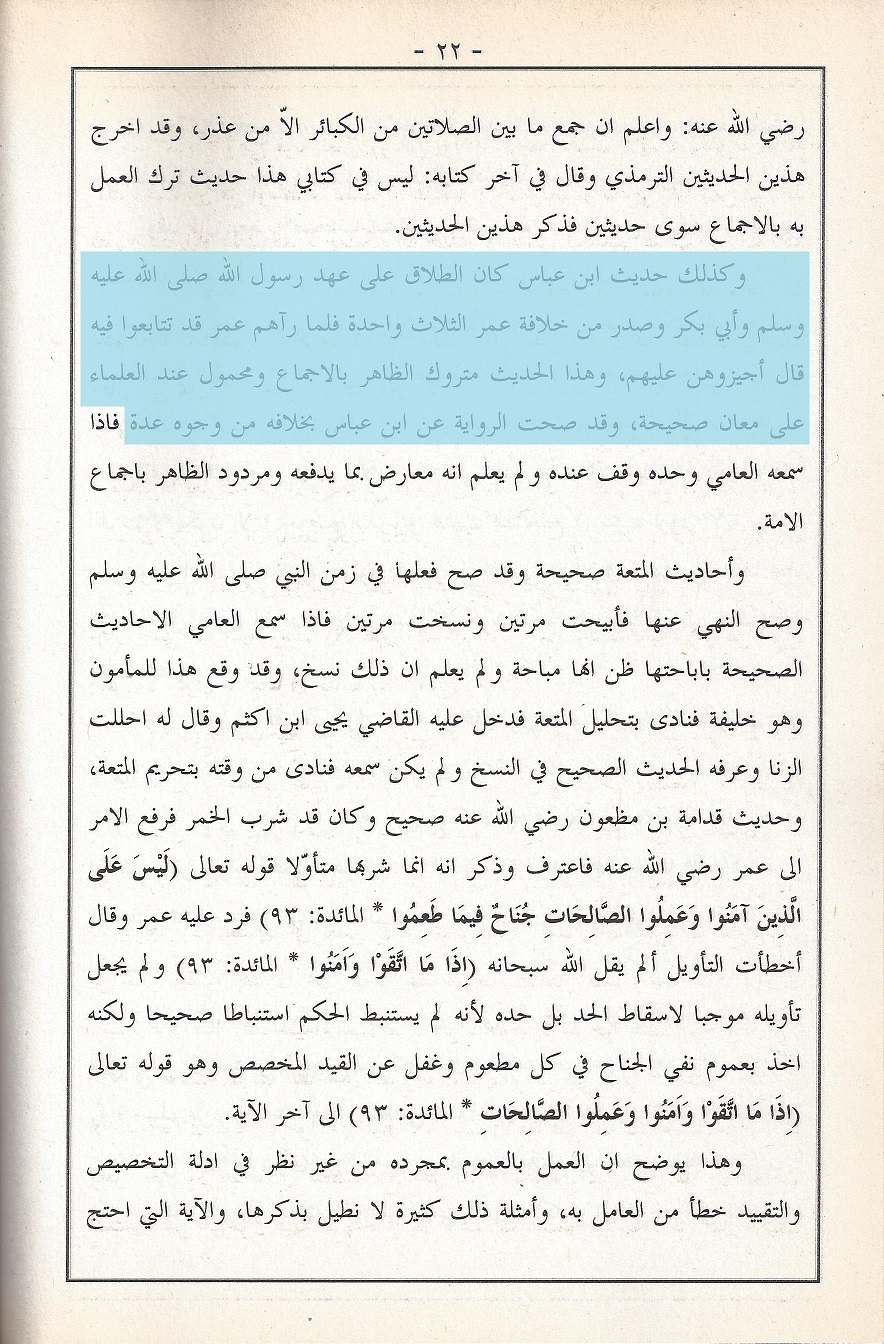 - ٢٢ -
رضي الله عنه: واعلم ان جمع ما بين الصلاتين من الكبائر الاّ من عذر، وقد اخرج
هذين الحديثين الترمذي وقال في آخر كتابه: ليس في كتابي هذا حديث ترك العمل
به بالاجماع سوى حديثين فذكر هذين الحديثين.
وكذلك حديث ابن عباس كان الطلاق على عهد رسول الله صلى الله عليه
وسلم وأبي بكر وصدر من خلافة عمر الثلاث واحدة فلما رآهم عمر قد تتابعوا فيه
قال أجيزوهن عليهم، وهذا الحديث متروك الظاهر بالاجماع ومحمول عند العلماء
على معان صحيحة، وقد صحت الرواية عن ابن عباس بخلافه من وجوه عدة فاذا
سمعه العامي وحده وقف عنده ولم يعلم انه معارض بما يدفعه ومردود الظاهر باجماع
الامة.
وأحاديث المتعة صحيحة وقد صح فعلها في زمن النبي صلى الله عليه وسلم
وصح النهي عنها فأبيحت مرتين ونسخت مرتين فاذا سمع العامي الاحاديث
الصحيحة باباحتها ظن انها مباحة ولم يعلم ان ذلك نسخ، وقد وقع هذا للمأمون
وهو خليفة فنادى بتحليل المتعة فدخل عليه القاضي يحيى ابن اكثم وقال له احللت
الزنا وعرفه الحديث الصحيح في النسخ ولم يكن سمعه فنادى من وقته بتحريم المتعة،
وحديث قدامة بن مظعون رضي الله عنه صحيح وكان قد شرب الخمر فرفع الامر
الى عمر رضي الله عنه فاعترف وذكر انه انما شربها متأوّلا قوله تعالى (لَيْسَ عَلَى
الَّذِينَ آمَنُوا وَعَمِلُوا الصَّالِحَاتِ جُنَاحٌ فِيمَا طَعِمُوا * المائدة: ٩٣) فرد عليه عمر وقال
أخطأت التأويل ألم يقل الله سبحانه (اِذَا مَا اتَّقَوْا وَاَمَنُوا * المائدة: ٩٣) ولم يجعل
تأويله موجبا لاسقاط الحد بل حده لأنه لم يستنبط الحكم استنباطا صحيحا ولكنه
اخذ بعموم نفي الجناح في كل مطعوم وغفل عن القيد المخصص وهو قوله تعالى
(اِذَا مَا اتَّقَوْا وَاَمَنُوا وَعَمِلُوا الصَّالِحَاتِ * المائدة: ٩٣) الى آخر الآية.
وهذا يوضح ان العمل بالعموم بمجرده من غير نظر في ادلة التخصيص
والتقييد خطأ من العامل به، وأمثلة ذلك كثيرة لا نطيل بذكرها، والآية التي احتج